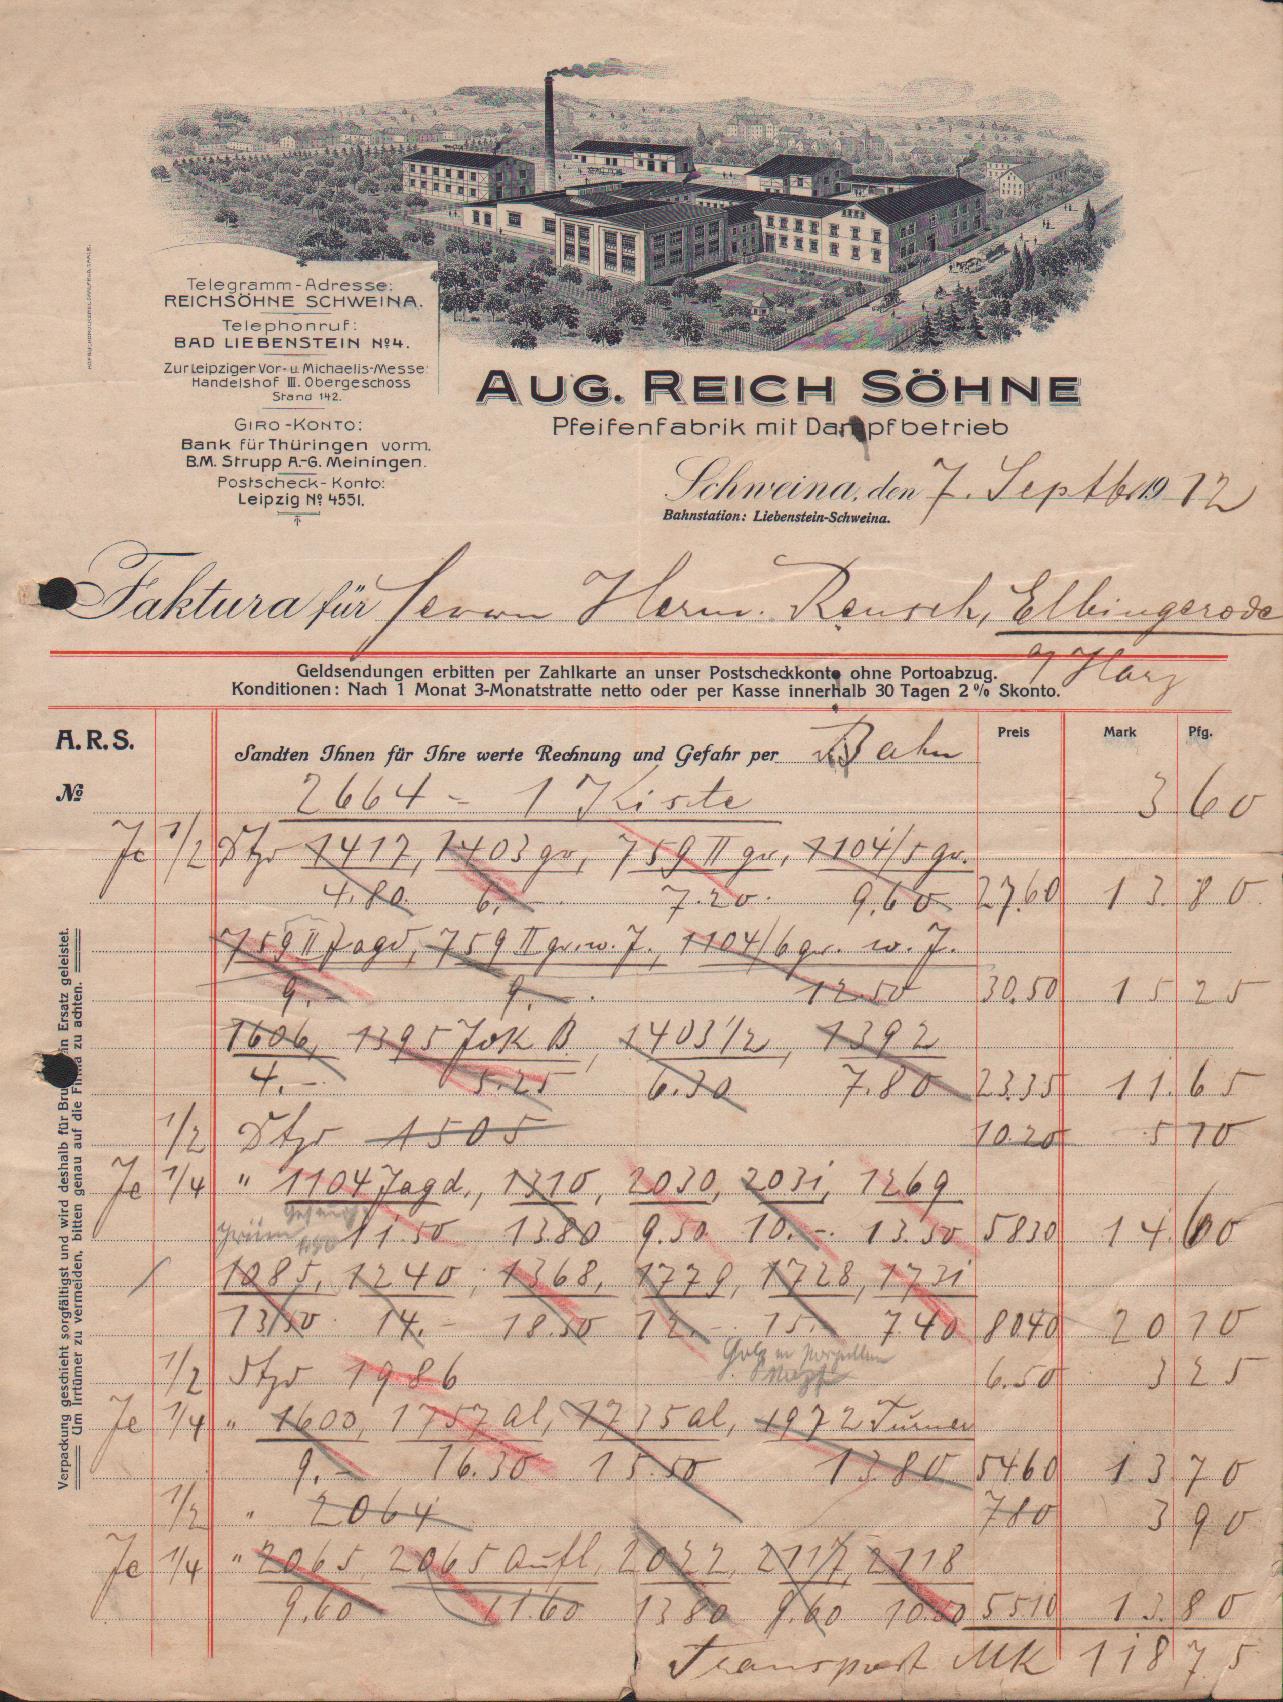 Telegramm-Adresse:
REICHSÖHNE SCHWEINA.
Telephonruf:
BAD LIEBENSTEIN No 4.
Zur Leipziger Vor- u. Michaelis-Messe:
Handelshof III. Obergeschoss
Stand 142.
GIRO-KONTO:
Bank für Thüringen vorm.
B.M. Strupp A.-G. Meiningen.
Postscheck-Konto:
Leipzig No 4551.
AUG. REICH SÖHNE
Pfeifenfabrik mit Dampfbetrieb
Schweina, den 7. Septbr 1912
Bahnstation: Liebenstein-Schweina.
Faktura für Herrn Herm. Reusch, Elbingerode
a/ Harz
Geldsendungen erbitten per Zahlkarte an unser Postscheckkonto ohne Portoabzug.
Konditionen: Nach 1 Monat 3-Monatstratte netto oder per Kasse innerhalb 30 Tagen 2% Skonto.
A.R.S. Sandten Ihnen für Ihre werte Rechnung und Gefahr per Bahn Preis Mark Pfg.
No 2664 - 1 Kiste 3 60
Je 1/2 Dtzd 1417, 1403 gr, 759 II gr, 1104/5 gr.
4.80. 6.- 7.20. 9.60 27.60 13.80
759 II Jagd, 759 II gr. w. J., 1104/6 gr. w. J.
9.- 9.- 12.50 30.50 15 25
1606, 1395 Jok B, 1403 1/2, 1392
4.- 5.25 6.30 7.80 23.35 11.65
1/2 Dtzd 1505 10.20 5 10
Je 1/4 " 1104 Jagd, 1310, 2030, 2031, 1269
grün 11.50 13.80 9.50 10.- 13.50 58 30 14.60
1085, 1240, 1368, 1779, 1728, 1731
13.50 14.- 18.50 12.- 15.- 7.40 80 40 20 10
1/2 Dtzd 1986 6.50 3 25
Je 1/4 " 1600, 1757 al, 1735 al, 1972 Turner
9.- 16.30 15.50 13.80 54 60 13 70
1/2 " 2064 7 80 3 90
Je 1/4 " 2065, 2065 Aufl, 2022, 2117, 2118
9.60 11.60 13.80 9.60 10.50 55 10 13.80
Transport MK 118 75
Verpackung geschieht sorgfältigst und wird deshalb für Bru in Ersatz geleistet.
Um Irrtümer zu vermeiden, bitten genau auf die Firma zu achten.